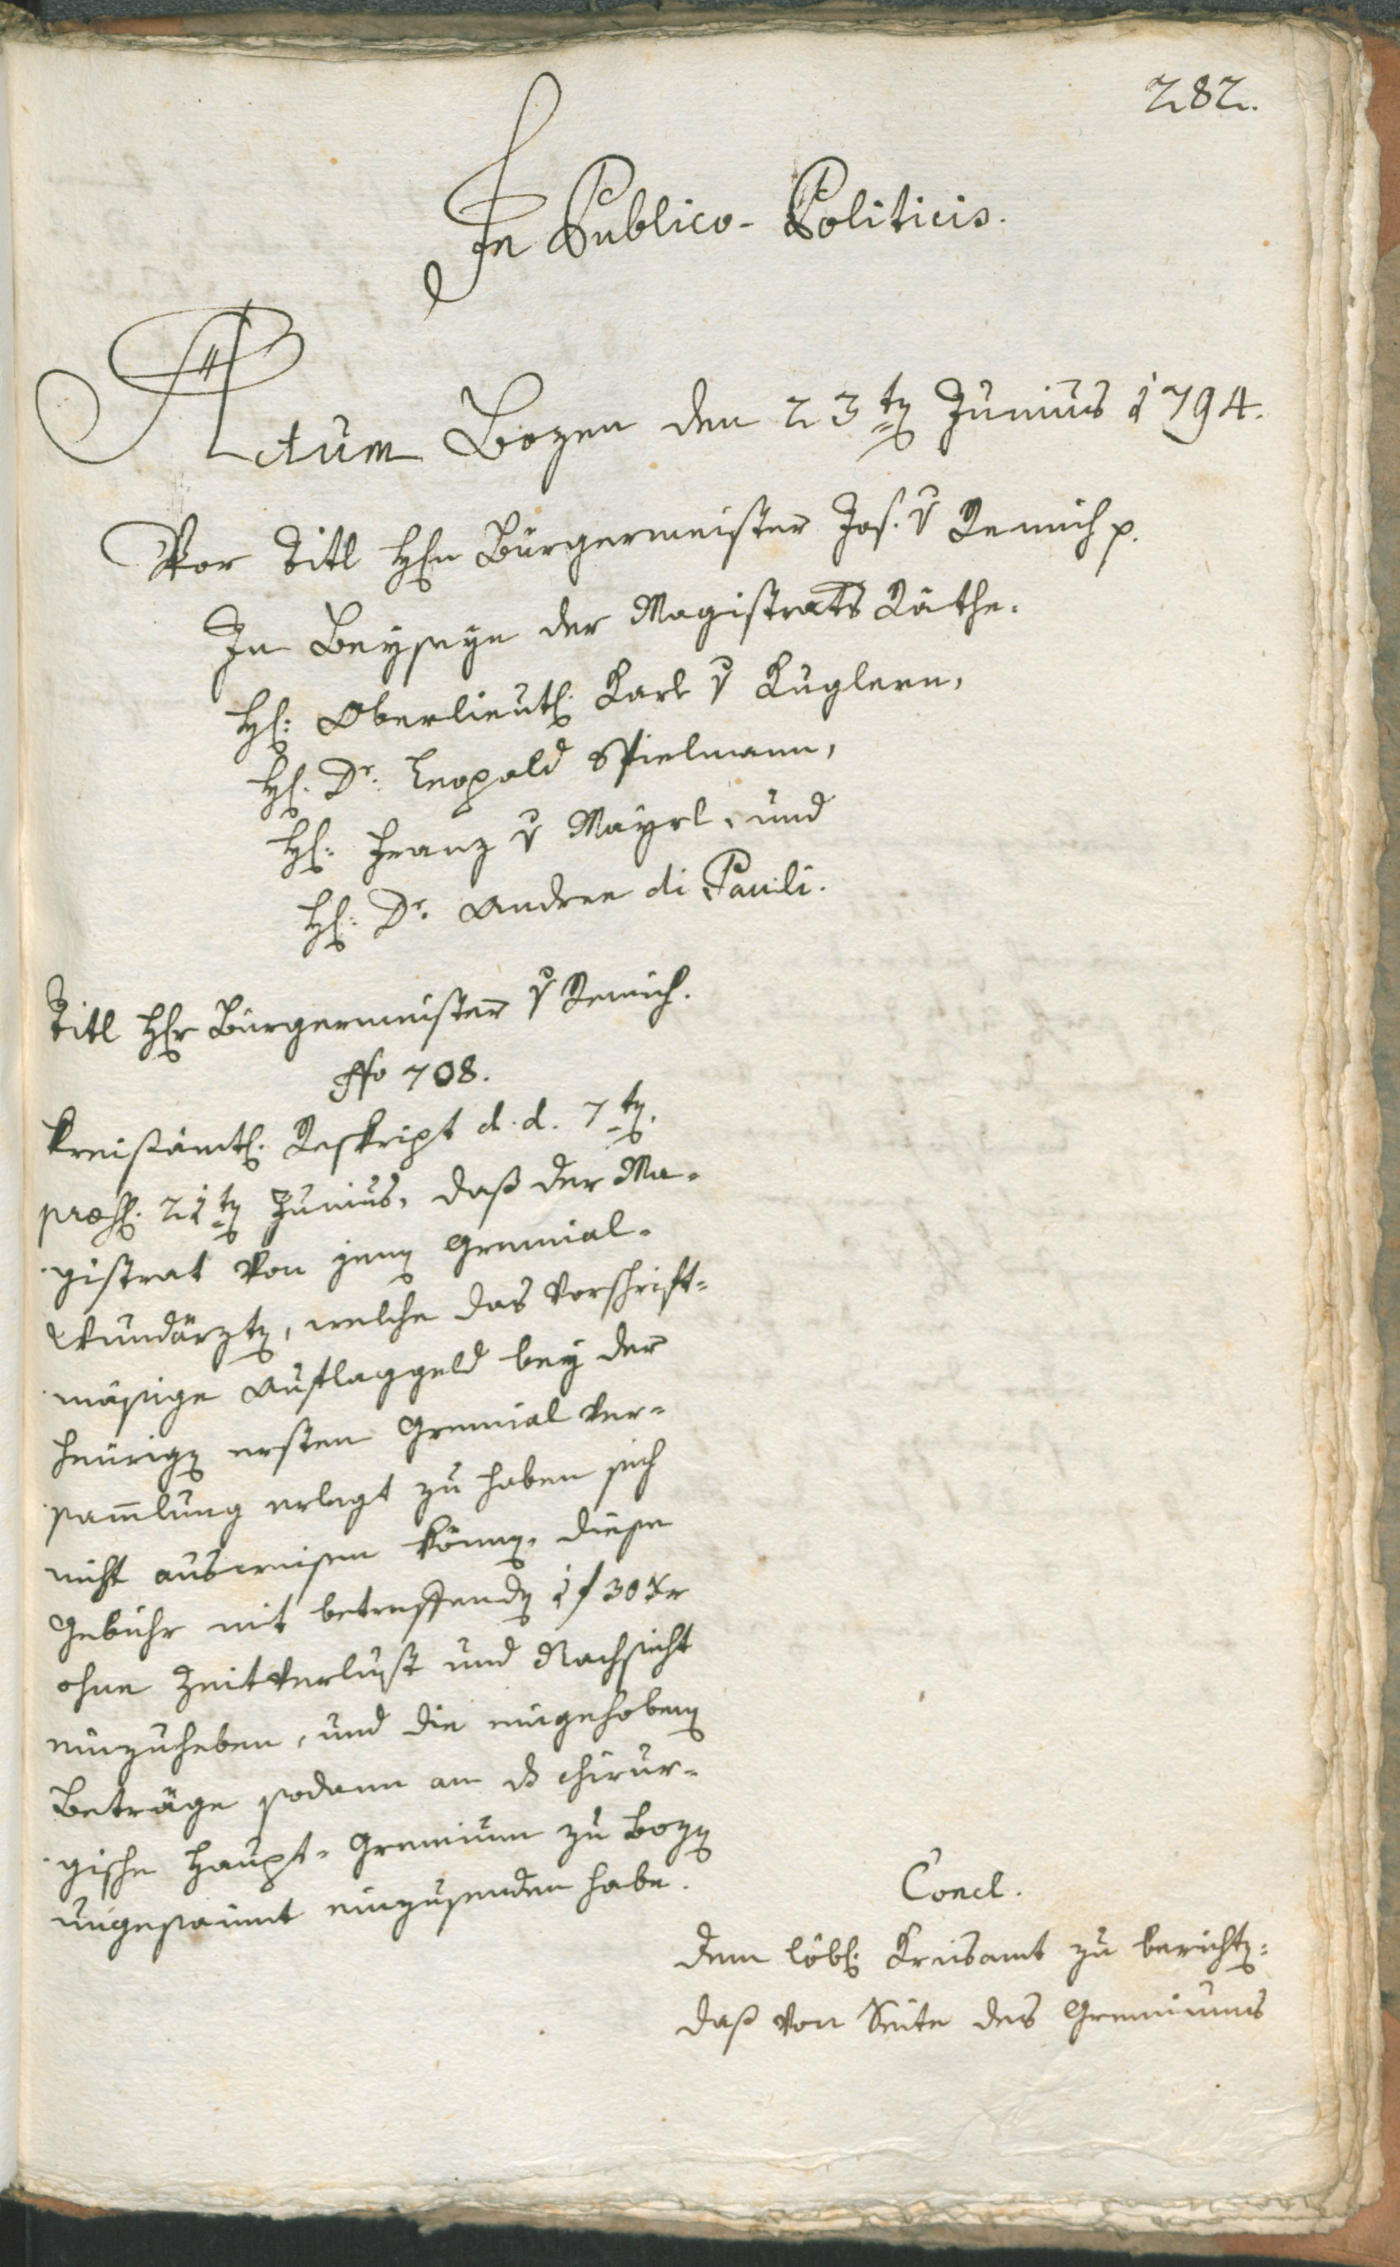 282.
In Publico-Politicis.
Actum Bozen den 23ten Junius 1794.
Vor Titl Hhn Bürgermeister Jos. v Remich p.
In Beyseyn der Magistrats Räthe.
Hl: Oberlieutl Karl v Kuglern,
Hl. Dr. Leopold Spielmann,
Hl: Franz v Mayrl, und
Hl: Dr. Andree di Pauli.
Titl Hhr Bürgermeister v Remich.
No 708.
Kreißämtl. Reskript d. d. 7ten.
præs. 21ten Junius, daß der Ma-
gistrat von jenen Gremial-
Wundärzten, welche das Vorschrift-
mäßige Auflaggeld bey der
heurigen ersten Gremial Ver-
sam̄lung erlegt zu haben sich
nicht ausweisen können, diese
Gebühr mit betreffenden 1 f 30 Xr
ohne Zeitverlust und Nachsicht
einzuheben, und die eingehobenen
Beträge sodann an ds chirur-
gische Haupt-Gremium zu Bozen
ungesäumt einzusenden habe.
Concl.
Dem löbl. Kreisamt zu berichten:
daß von Seite des Gremiums